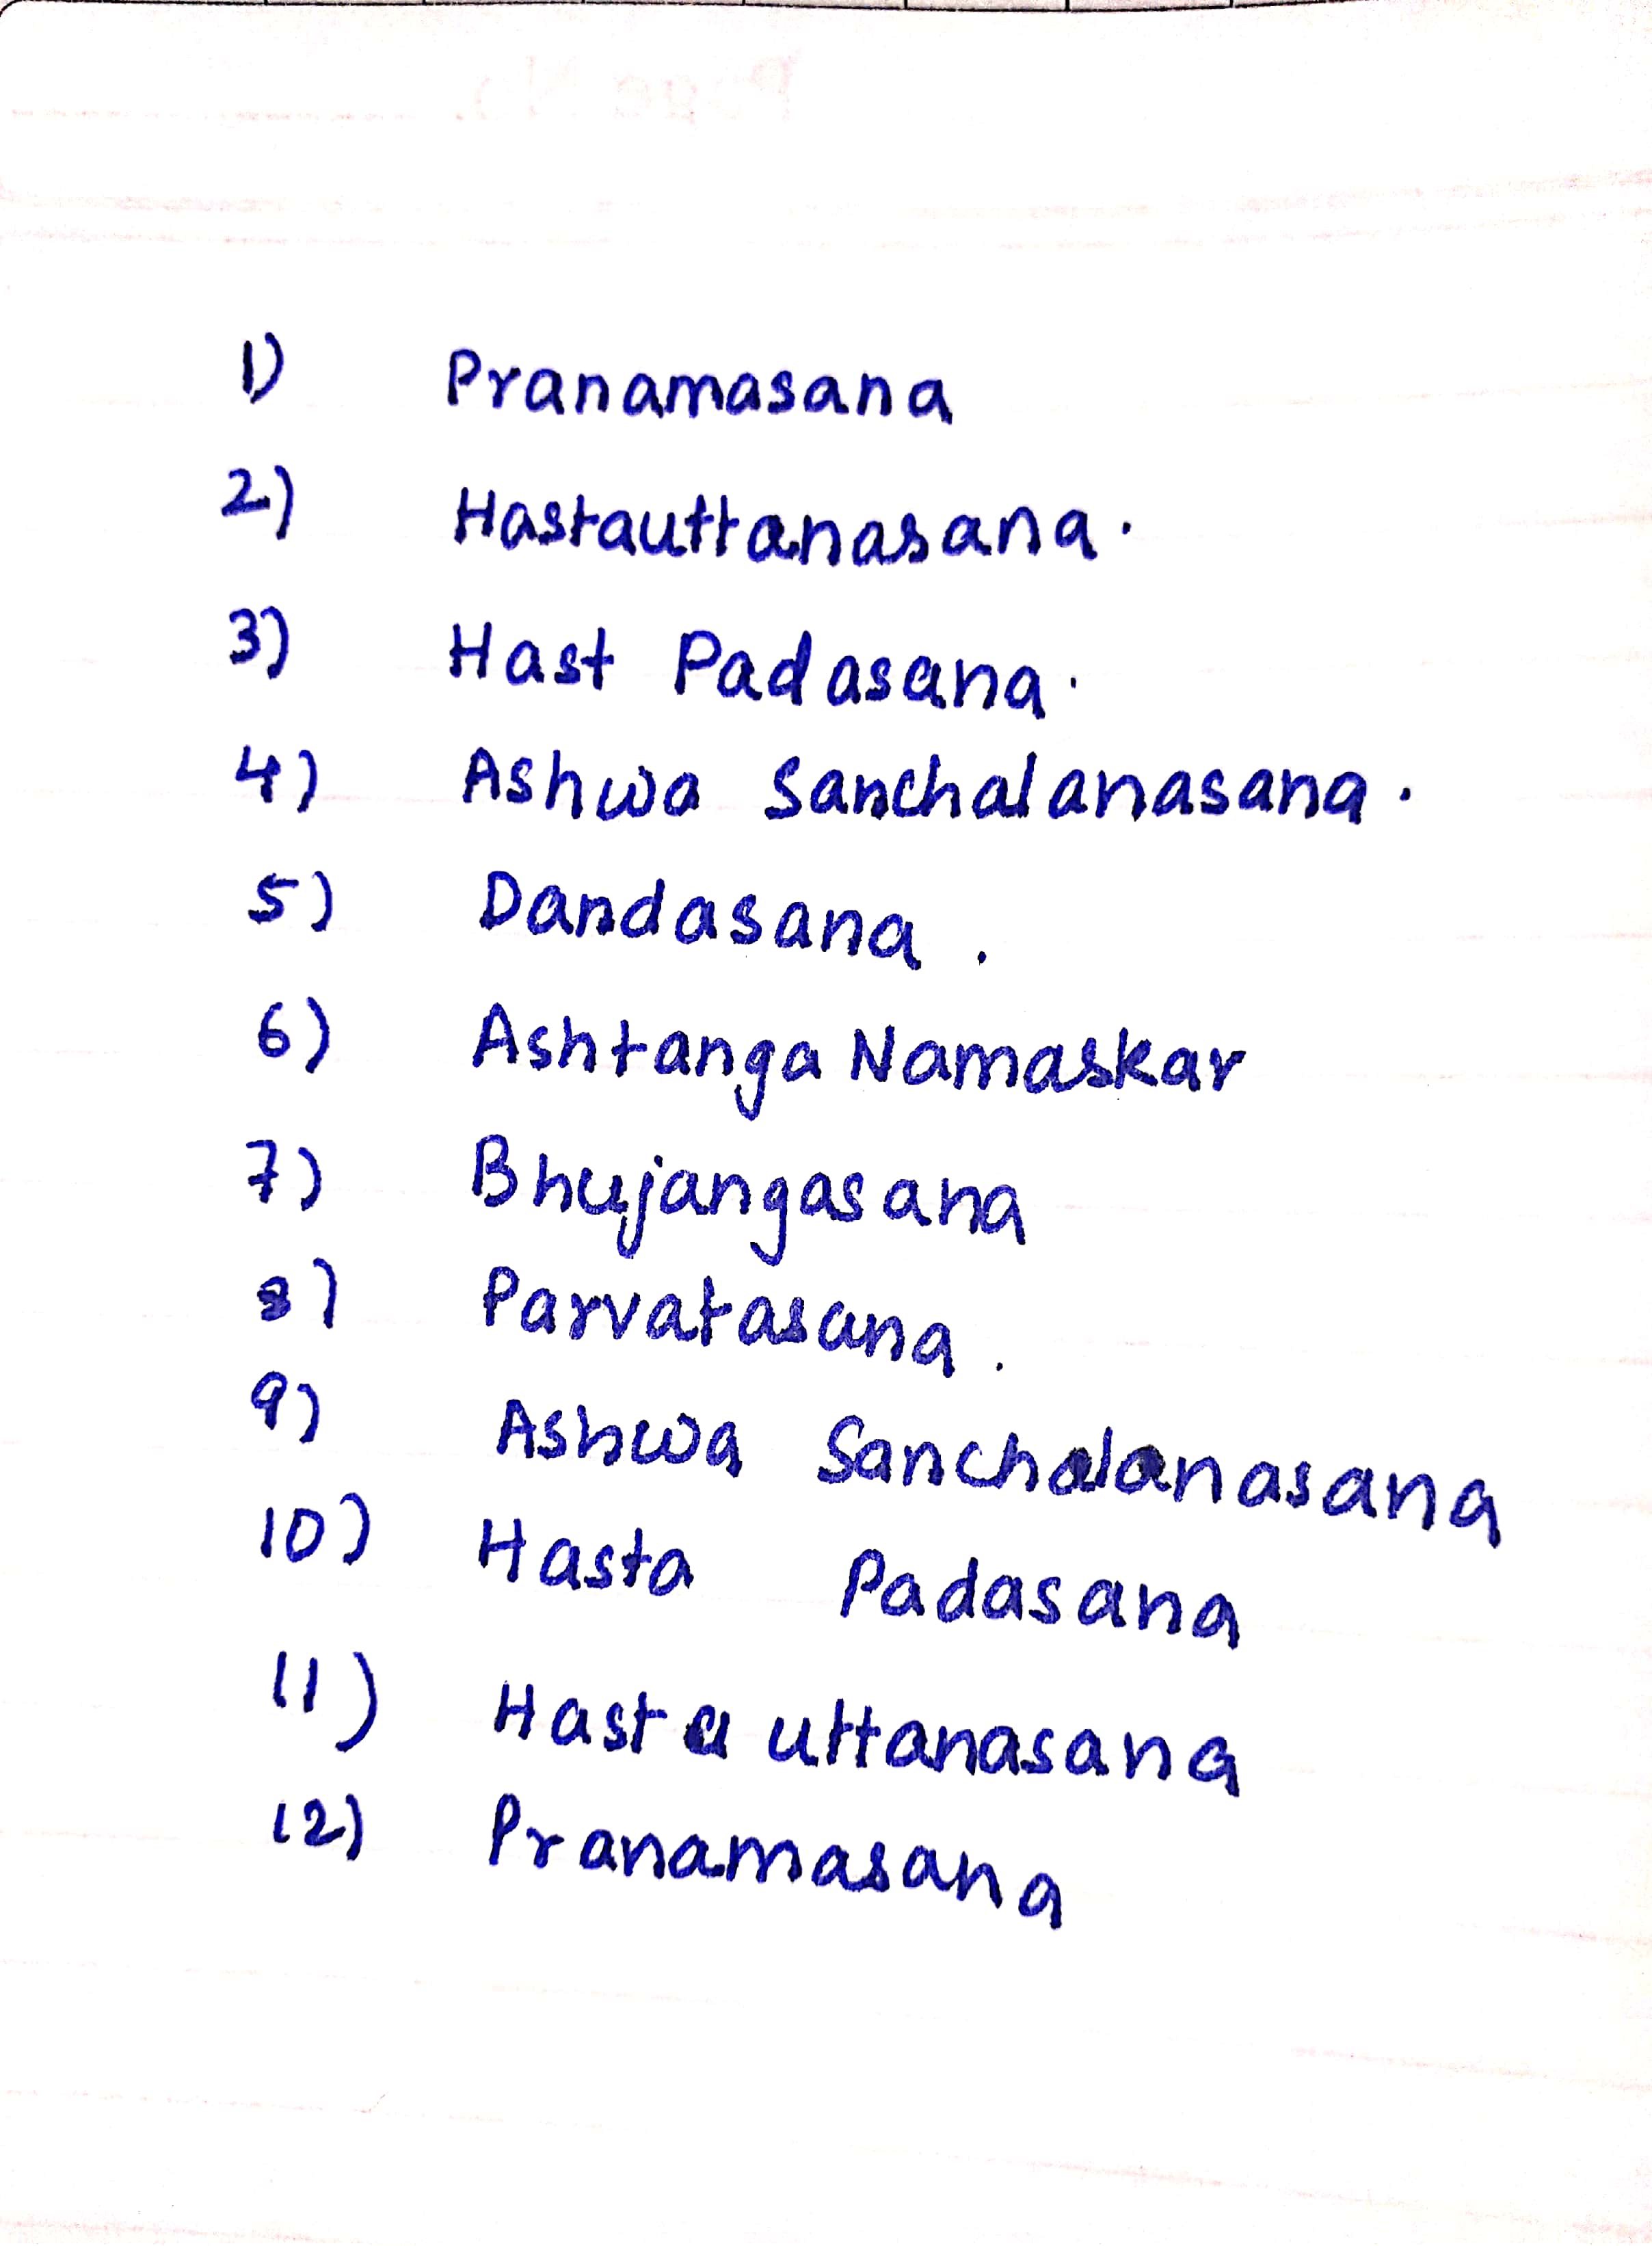 1) Pranamasana
2) Hastauttanasana.
3) Hast Padasana.
4) Ashwa Sanchalanasana.
5) Dandasana.
6) Ashtanga Namaskar
7) Bhujangasana
8) Parvatasana.
9) Ashwa Sanchalanasana
10) Hasta Padasana
11) Hasta uttanasana
12) Pranamasana